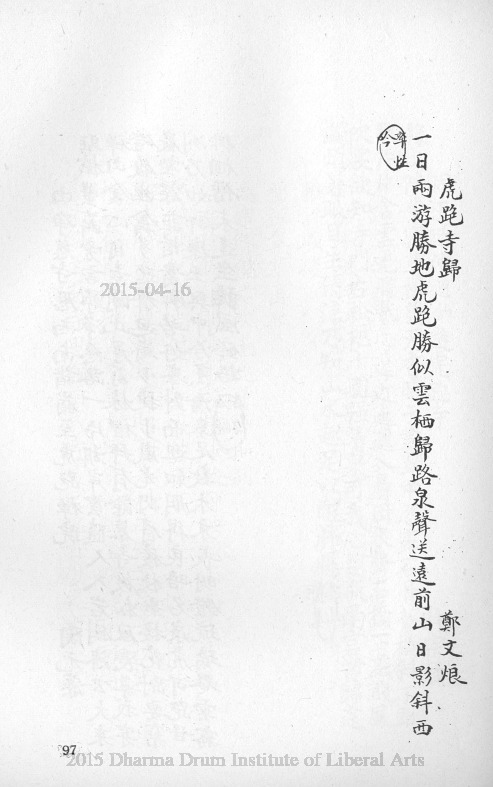 虎跑寺歸
鄭文烺
一日兩游勝地虎跑勝似雲栖歸路泉聲送遠前山日影斜西
今
2015-04-16
97
2015 Dharma Drum Institute of Liberal Arts